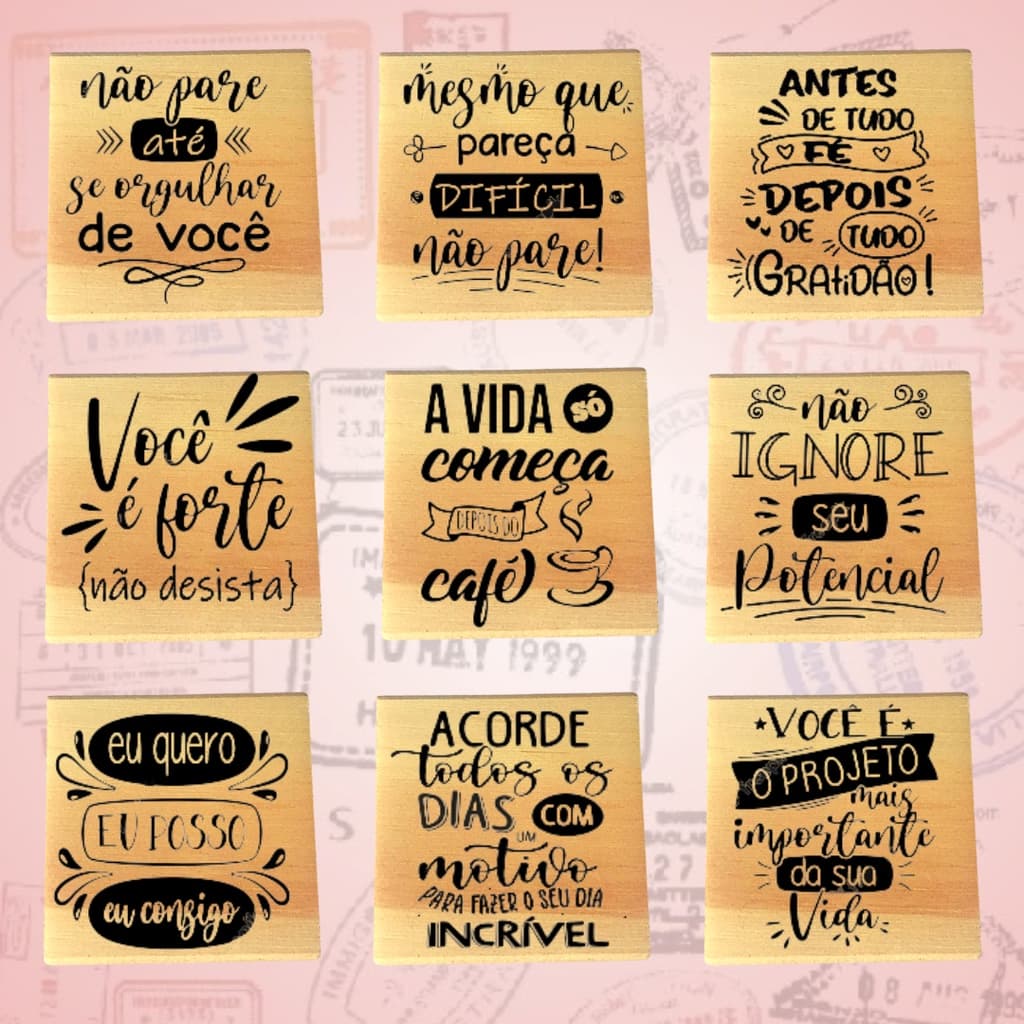 não pare
até
se orgulhar
de você
mesmo que
pareça
DIFÍCIL
não pare!
ANTES
DE TUDO
FÉ
DEPOIS
DE TUDO
GRATiDÃO!
Você
é forte
{não desista}
A VIDA SÓ
começa
DEPOIS DO
café
não
IGNORE
seu
Potencial
eu quero
EU POSSO
eu consigo
ACORDE
todos os
DIAS COM
UM
motivo
PARA FAZER O SEU DIA
INCRÍVEL
VOCÊ É
O PROJETO
mais
importante
da sua
Vida
03 MAR 2005
10 MAY 1999